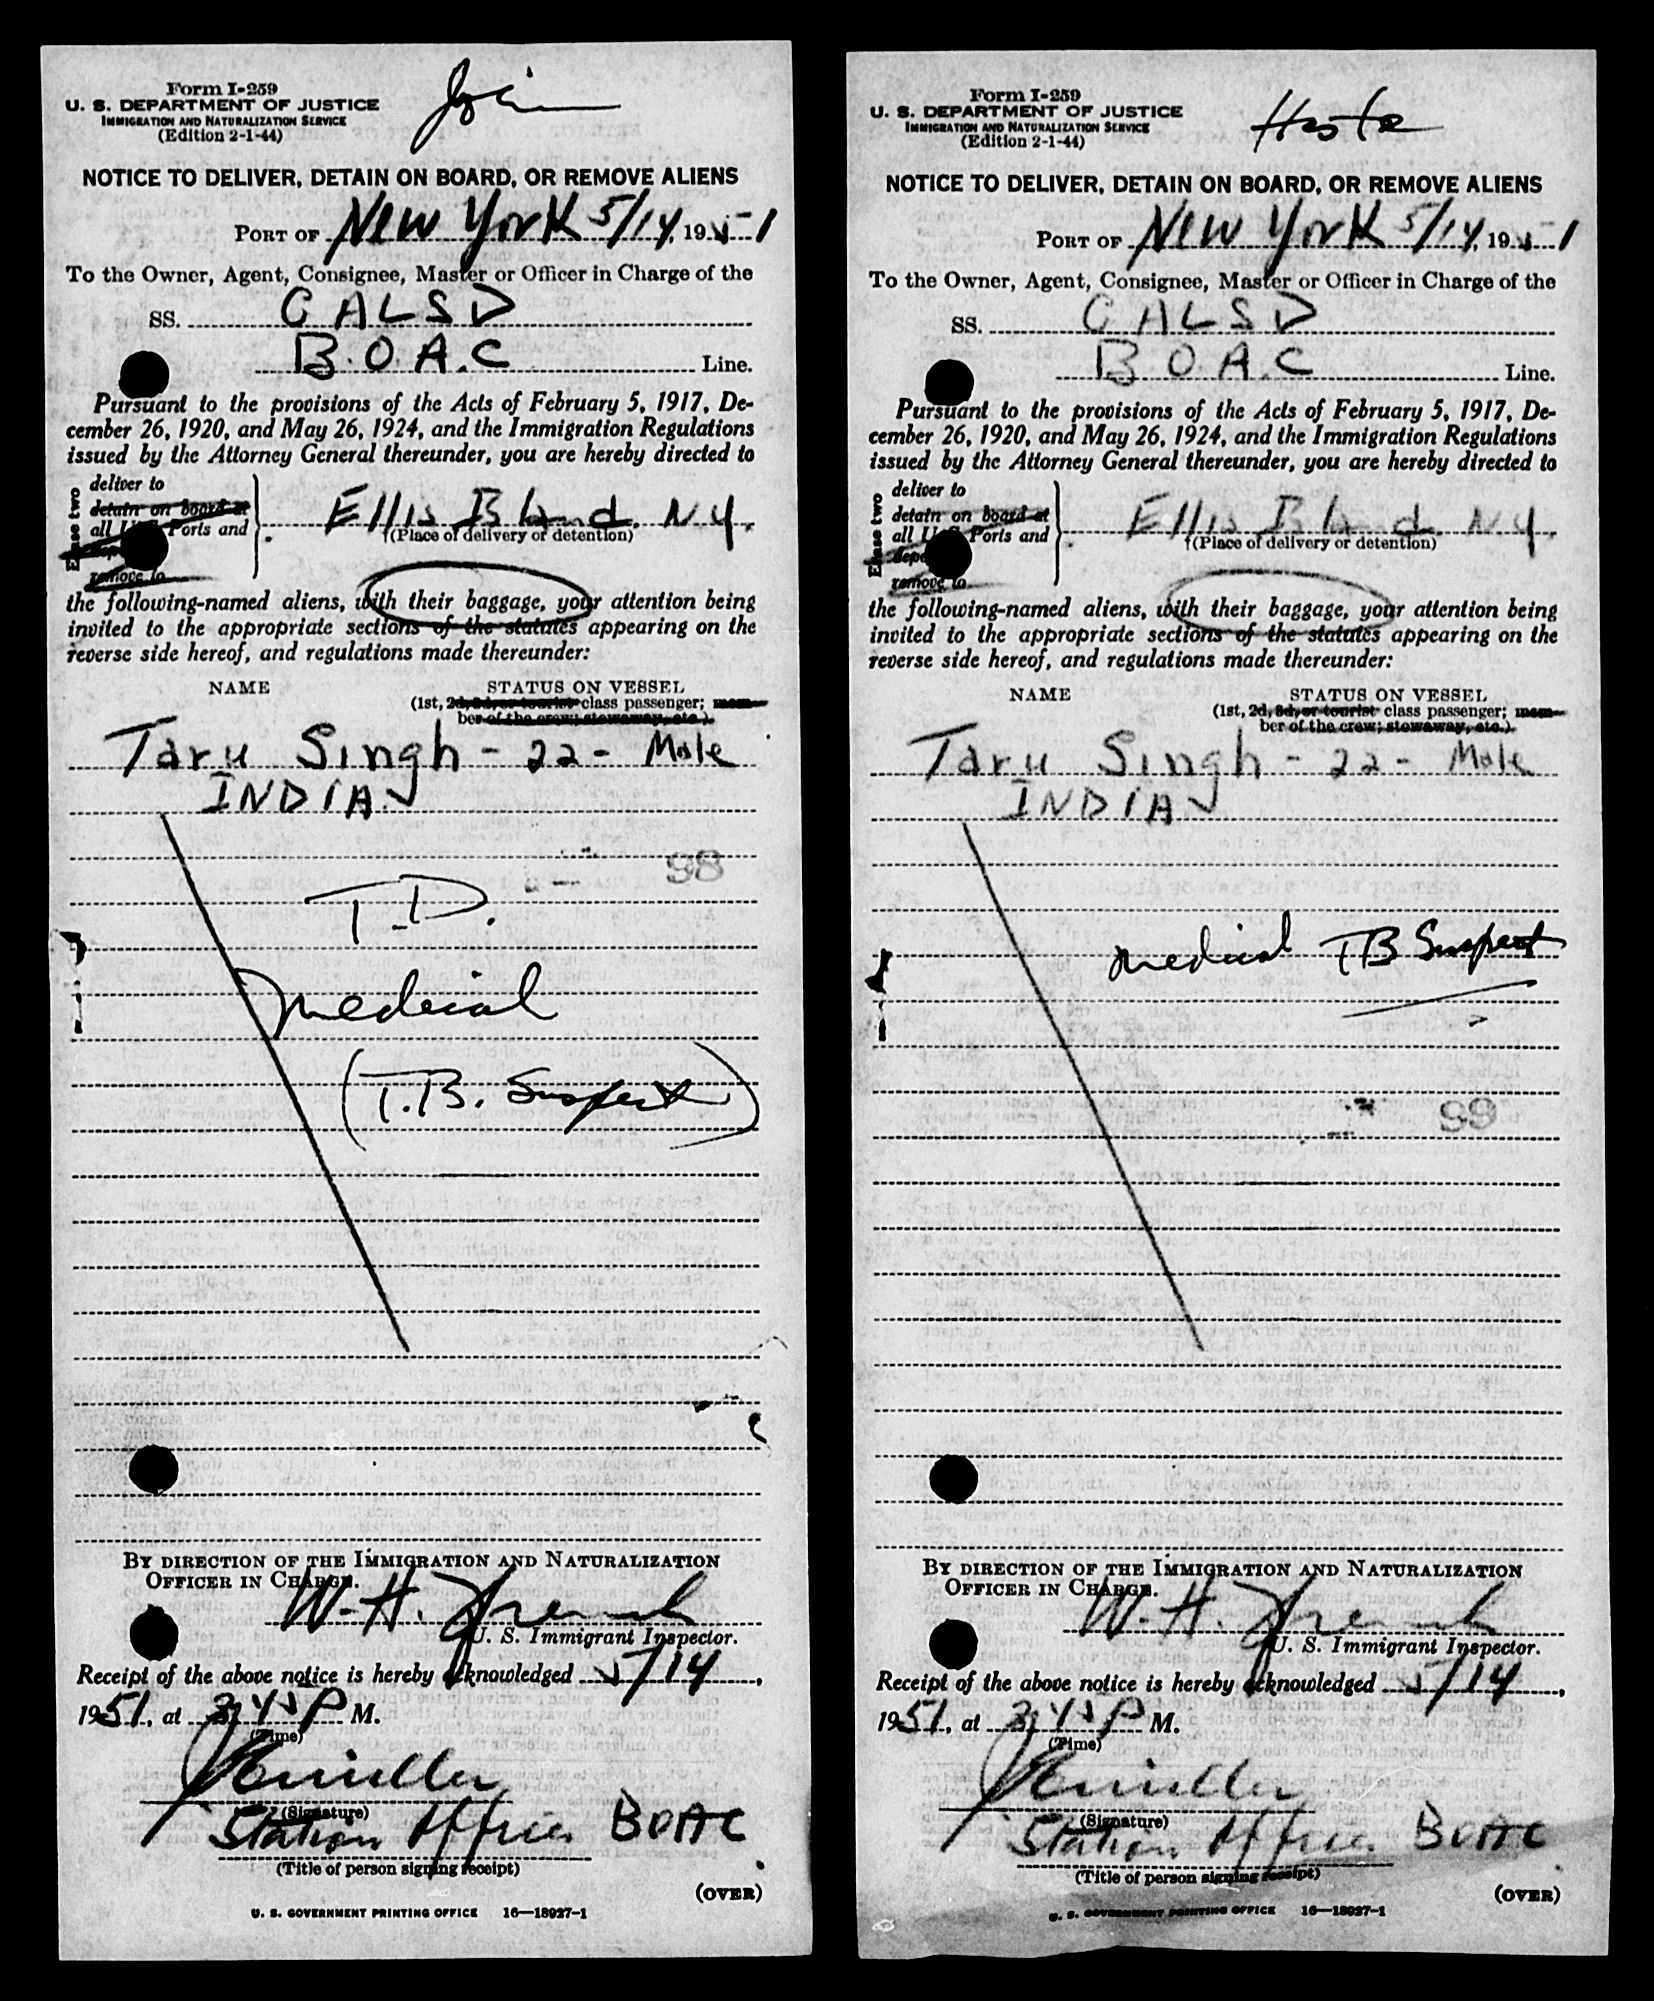 Form I-259
U. S. DEPARTMENT OF JUSTICE
IMMIGRATION AND NATURALIZATION SERVICE
(Edition 2-1-44)
NOTICE TO DELIVER, DETAIN ON BOARD, OR REMOVE ALIENS
PORT OF New York 5/14, 1951
To the Owner, Agent, Consignee, Master or Officer in Charge of the
SS. CALSD
B.O.A.C Line.
Pursuant to the provisions of the Acts of February 5, 1917, De-
cember 26, 1920, and May 26, 1924, and the Immigration Regulations
issued by the Attorney General thereunder, you are hereby directed to
Erase two
deliver to
detain on board at
all U.S. Ports and
remove to
Ellis Island. N.Y.
(Place of delivery or detention)
the following-named aliens, with their baggage, your attention being
invited to the appropriate sections of the statutes appearing on the
reverse side hereof, and regulations made thereunder:
NAME STATUS ON VESSEL
(1st, 2d, 3d, or tourist class passenger; mem-
ber of the crew; stowaway, etc.)
Taru Singh - 22 - Male
INDIA
98
T.D.
Medical
(T.B. Suspect)
BY DIRECTION OF THE IMMIGRATION AND NATURALIZATION
OFFICER IN CHARGE.
W. H.
U. S. Immigrant Inspector.
Receipt of the above notice is hereby acknowledged 5/14,
1951, at 3:45 P M.
(Time)
(Signature)
Station Officer BOAC
(Title of person signing receipt)
(OVER)
U. S. GOVERNMENT PRINTING OFFICE 16—18927-1
Form I-259
U. S. DEPARTMENT OF JUSTICE
IMMIGRATION AND NATURALIZATION SERVICE
(Edition 2-1-44)
NOTICE TO DELIVER, DETAIN ON BOARD, OR REMOVE ALIENS
PORT OF New York 5/14, 1951
To the Owner, Agent, Consignee, Master or Officer in Charge of the
SS. CALSD
B O A.C Line.
Pursuant to the provisions of the Acts of February 5, 1917, De-
cember 26, 1920, and May 26, 1924, and the Immigration Regulations
issued by the Attorney General thereunder, you are hereby directed to
Erase two
deliver to
detain on board at
all U.S. Ports and
remove to
Ellis Island N.Y.
(Place of delivery or detention)
the following-named aliens, with their baggage, your attention being
invited to the appropriate sections of the statutes appearing on the
reverse side hereof, and regulations made thereunder:
NAME STATUS ON VESSEL
(1st, 2d, 3d, or tourist class passenger; mem-
ber of the crew; stowaway, etc.)
Taru Singh - 22 - Male
INDIA
medical TB Suspect
99
BY DIRECTION OF THE IMMIGRATION AND NATURALIZATION
OFFICER IN CHARGE.
W. H.
U. S. Immigrant Inspector.
Receipt of the above notice is hereby acknowledged 5/14,
1951, at 3:45 P M.
(Time)
(Signature)
Station Officer BOAC
(Title of person signing receipt)
(OVER)
U. S. GOVERNMENT PRINTING OFFICE 16—18927-1